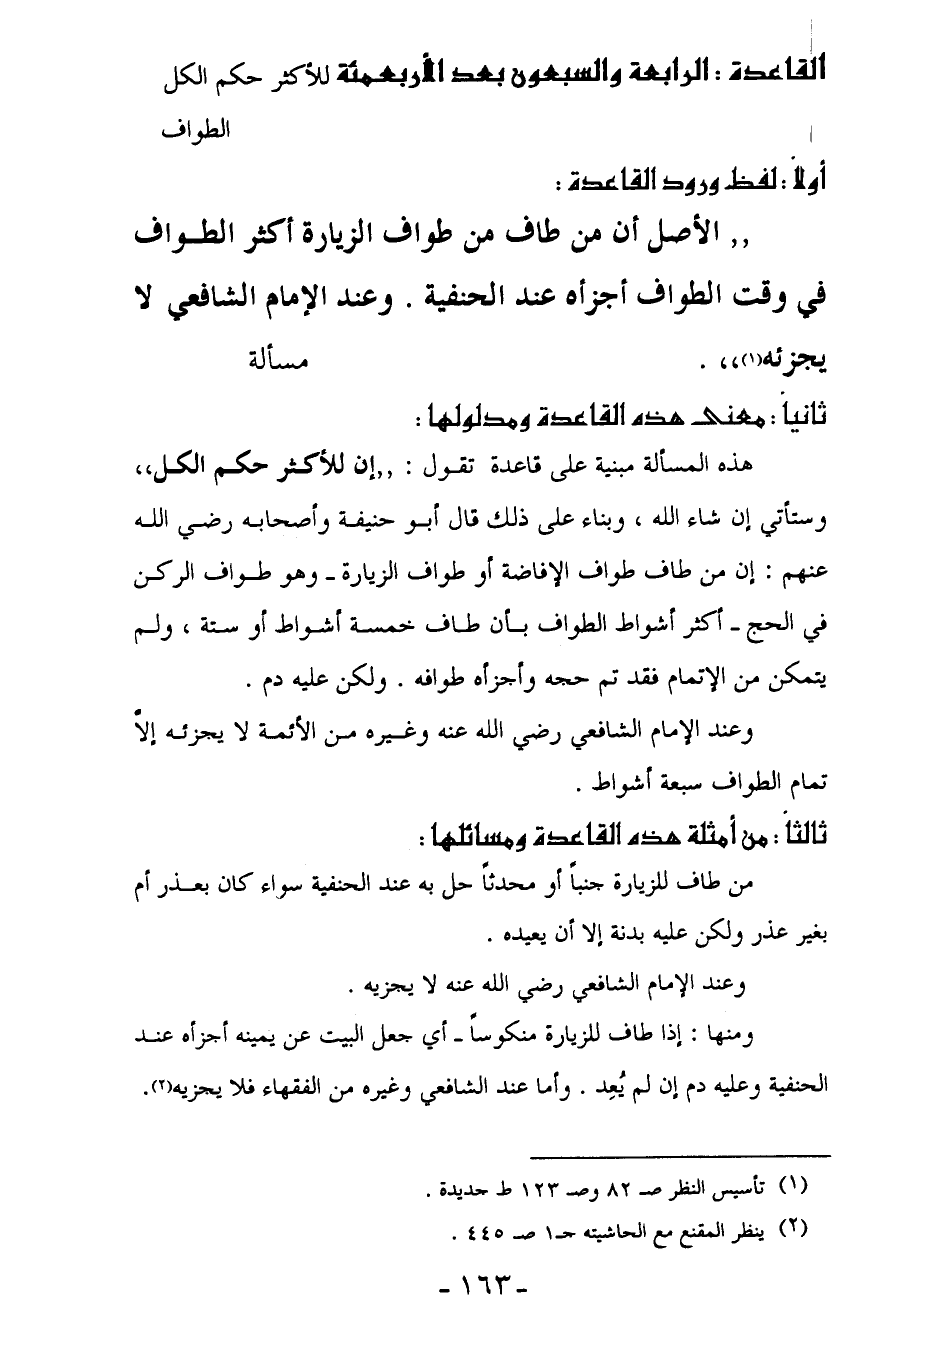 القاعدة : الرابعة والسبعون بعد الأربعمئة للأكثر حكم الكل
الطواف
أولاً : لفظ ورود القاعدة :
,, الأصل أن من طاف من طواف الزيارة أكثر الطـواف
في وقت الطواف أجزأه عند الحنفية . وعند الإمام الشافعي لا
يجزئه(١)،، . مسألة
ثانياً : معنى هذه القاعدة ومدلولها :
هذه المسألة مبنية على قاعدة تقـول : ,,إن للأكـثر حكـم الكـل،،
وستأتي إن شاء الله ، وبناء على ذلك قال أبـو حنيفـة وأصحابـه رضـي اللـه
عنهم : إن من طاف طواف الإفاضة أو طواف الزيارة ـ وهو طـواف الركـن
في الحج ـ أكثر أشواط الطواف بـأن طـاف خمسـة أشـواط أو ستة ، ولـم
يتمكن من الإتمام فقد تم حجه وأجزأه طوافه . ولكن عليه دم .
وعند الإمام الشافعي رضي الله عنه وغـيره مـن الأئمـة لا يجزئـه إلاَّ
تمام الطواف سبعة أشواط .
ثالثاً : من أمثلة هذه القاعدة ومسائلها :
من طاف للزيارة جنباً أو محدثاً حل به عند الحنفية سواء كان بعـذر أم
بغير عذر ولكن عليه بدنة إلا أن يعيده .
وعند الإمام الشافعي رضي الله عنه لا يجزيه .
ومنها : إذا طاف للزيارة منكوساً ـ أي جعل البيت عن يمينه أجزأه عنـد
الحنفية وعليه دم إن لم يُعِد . وأما عند الشافعي وغيره من الفقهاء فلا يجزيه(٢).
(١) تأسيس النظر صـ ٨٢ وصـ ١٢٣ ط جديدة .
(٢) ينظر المقنع مع الحاشيته حـ١ صـ ٤٤٥ .
ـ ١٦٣ ـ